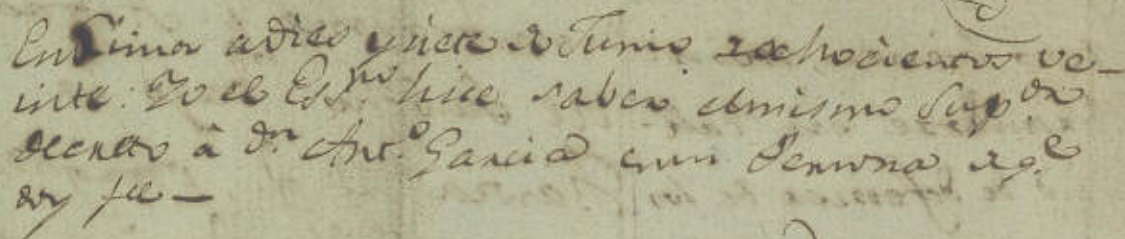 En Lima a dies y siete de Junio de ochocientos ve-
inte. Yo el Essno hice saber el mismo Supor
decreto à dn Anto Garcia en su Persona de qe
doy fee —